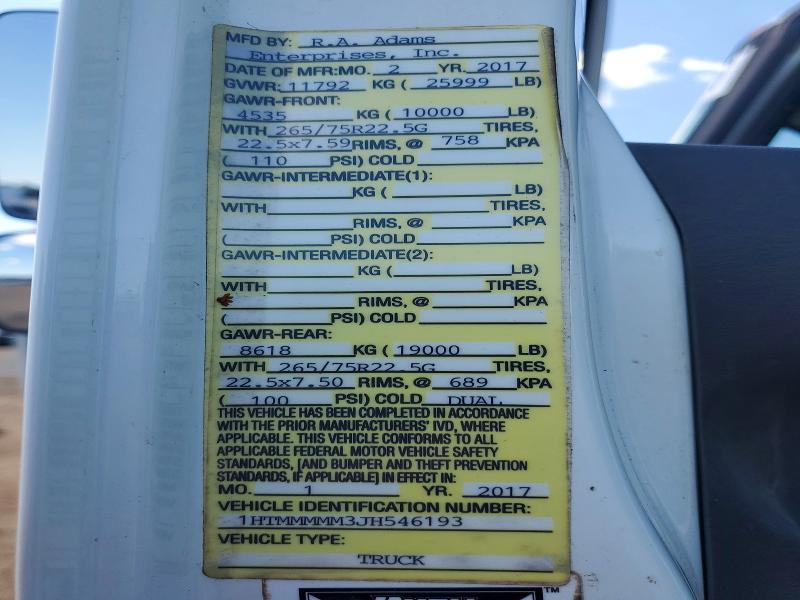 MFD BY: R.A. Adams
Enterprises, Inc.
DATE OF MFR:MO. 2 YR. 2017
GVWR: 11792 KG ( 25999 LB)
GAWR-FRONT:
4535 KG ( 10000 LB)
WITH 265/75R22.5G TIRES,
22.5x7.59 RIMS, @ 758 KPA
( 110 PSI) COLD
GAWR-INTERMEDIATE(1):
KG ( LB)
WITH TIRES,
RIMS, @ KPA
( PSI) COLD
GAWR-INTERMEDIATE(2):
KG ( LB)
WITH TIRES,
RIMS, @ KPA
( PSI) COLD
GAWR-REAR:
8618 KG ( 19000 LB)
WITH 265/75R22.5G TIRES,
22.5x7.50 RIMS, @ 689 KPA
( 100 PSI) COLD DUAL
THIS VEHICLE HAS BEEN COMPLETED IN ACCORDANCE
WITH THE PRIOR MANUFACTURERS' IVD, WHERE
APPLICABLE. THIS VEHICLE CONFORMS TO ALL
APPLICABLE FEDERAL MOTOR VEHICLE SAFETY
STANDARDS, [AND BUMPER AND THEFT PREVENTION
STANDARDS, IF APPLICABLE] IN EFFECT IN:
MO. 1 YR. 2017
VEHICLE IDENTIFICATION NUMBER:
1HTMMMMM3JH546193
VEHICLE TYPE:
TRUCK
TM